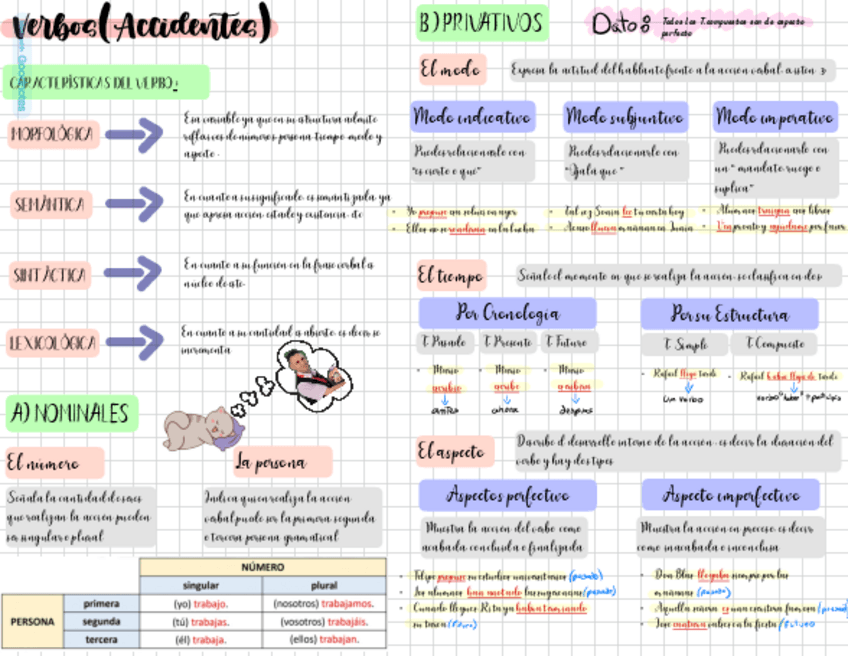 Verbos(Accidentes)
CARACTERÍSTICAS DEL VERBO:
MORFOLÓGICA
Es variable ya que en su estructura admite
reflexiones de número persona tiempo modo y
aspecto.
SEMÁNTICA
En cuanto a su significado es semántica ya
que apresa acción estado y existencia. etc
SINTÁCTICA
En cuanto a su función en la frase verbal es
núcleo de este.
LEXICOLÓGICA
En cuanto a su cantidad es abierto es decir se
incrementa
A) NOMINALES
El número
Señala la cantidad de seres
que realizan la acción pueden
ser singular o plural
La persona
Indica quien realiza la acción
verbal puede ser la primera segunda
o tercera persona gramatical
NÚMERO
singular plural
PERSONA
primera (yo) trabajo. (nosotros) trabajamos.
segunda (tú) trabajas. (vosotros) trabajáis.
tercera (él) trabaja. (ellos) trabajan.
B) PRIVATIVOS
Dato: Todos los T. compuestos son de aspecto
perfecto
El modo
Expresa la actitud del hablante frente a la acción verbal. existen 3
Modo indicativo
Puedes relacionarlo con
"es cierto e que"
Ellos no se rendirán en la lucha
Modo subjuntivo
Puedes relacionarlo con
"Ojalá que"
Tal vez Sonia lee tu carta hoy
Acaso llueva mañana en Junín
Modo imperativo
Puedes relacionarlo con
un "mandato ruego o
suplica"
Alumnos traigan sus libros
Ven pronto y ayúdame por favor
El tiempo
Señala el momento en que se realiza la acción. se clasifica en dos
Por Cronología
T. Pasado T. Presente T. Futuro
Mario Mario Mario
escribió escribe escribirá
antes ahora después
Por su Estructura
T. Simple T. Compuesto
Rafael llega tarde
Rafael había llegado tarde
Un verbo
verbo "haber" + participio
El aspecto
Describe el desarrollo interno de la acción. es decir la duración del
verbo y hay dos tipos
Aspectos perfectivo
Muestra la acción del verbo como
acabada concluida o finalizada
Felipe sus estudios universitarios (pasado)
Los alumnos han anotado (pasado)
Cuando llegues Rita ya habrá terminado
su tarea (futuro)
Aspecto imperfectivo
Muestra la acción en proceso es decir
como inacabada e inconclusa
Don Blas llegaba siempre por las
mañanas (pasado)
Aquella señora es una escritora famosa
José cantará en la fiesta (futuro